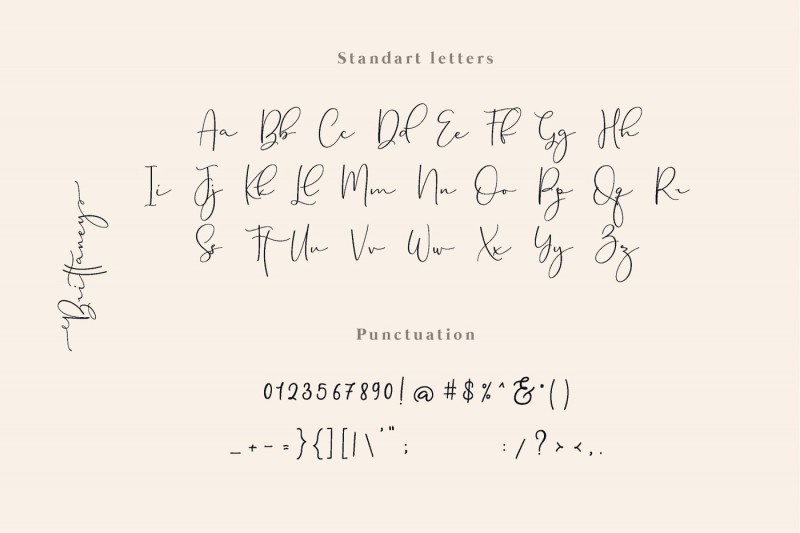 Standart letters
Aa Bb Cc Dd Ee Ff Gg Hh
Ii Jj Kk Ll Mm Nn Oo Pp Qq Rr
Ss Tt Uu Vv Ww Xx Yy Zz
Brittaney
Punctuation
0123567890!@#$%^&*()
_+-=}{][|\'";:/?><,.